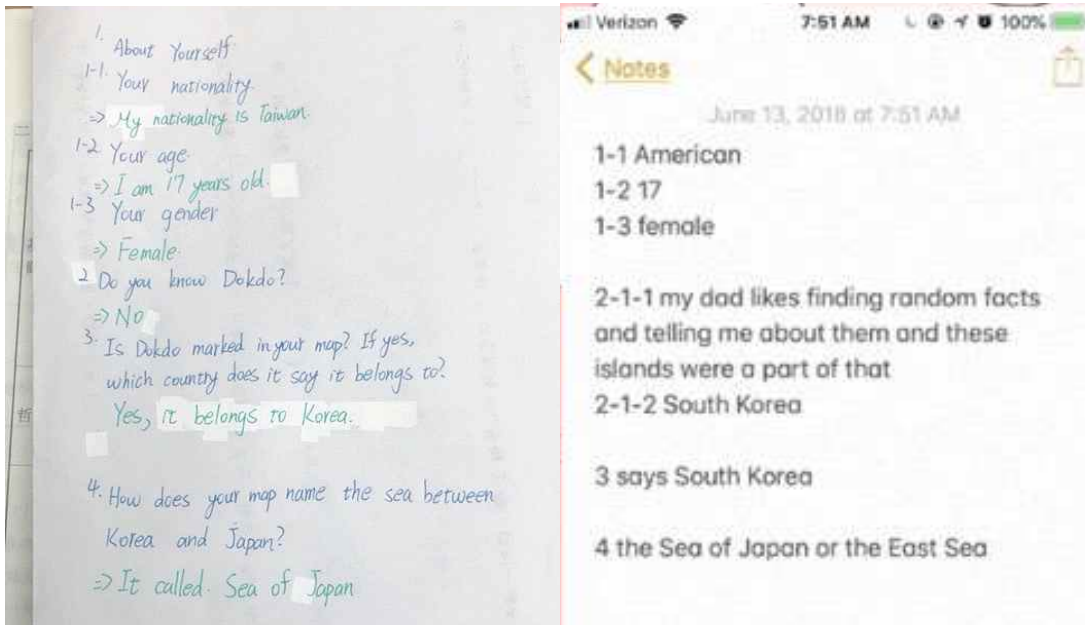 1. About Yourself
1-1. Your nationality.
=> My nationality is Taiwan.
1-2 Your age.
=> I am 17 years old.
1-3 Your gender
=> Female.
2 Do you know Dokdo?
=> No
3. Is Dokdo marked in your map? If yes,
which country does it say it belongs to?
Yes, it belongs to Korea.
4. How does your map name the sea between
Korea and Japan?
=> It called. Sea of Japan
Verizon 7:51 AM 100%
Notes
June 13, 2018 at 7:51 AM
1-1 American
1-2 17
1-3 female
2-1-1 my dad likes finding random facts
and telling me about them and these
islands were a part of that
2-1-2 South Korea
3 says South Korea
4 the Sea of Japan or the East Sea